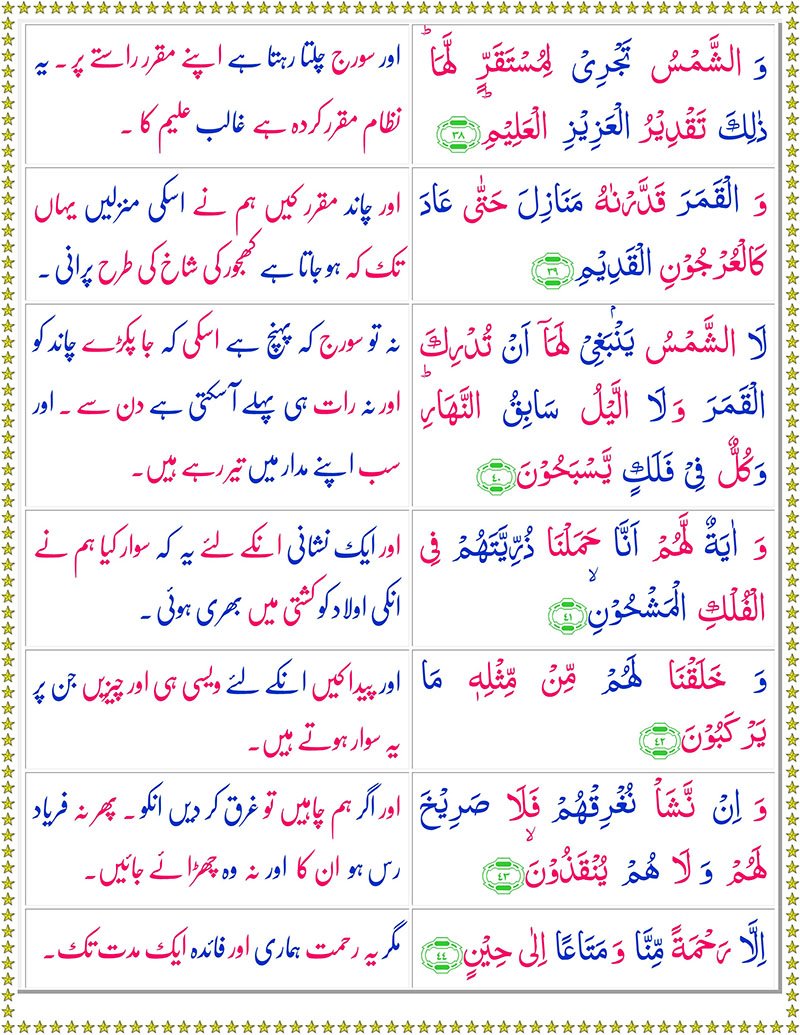 وَ الشَّمْسُ تَجْرِىْ لِمُسْتَقَرٍّ لَّهَا ؕ
ذٰلِكَ تَقْدِيْرُ الْعَزِيْزِ الْعَلِيْمِ ؕ ﴿۳۸﴾
اور سورج چلتا رہتا ہے اپنے مقرر راستے پر ۔ یہ
نظام مقرر کردہ ہے غالب علیم کا ۔
وَ الْقَمَرَ قَدَّرْنٰهُ مَنَازِلَ حَتّٰى عَادَ
كَالْعُرْجُوْنِ الْقَدِيْمِ ﴿۳۹﴾
اور چاند مقرر کیں ہم نے اسکی منزلیں یہاں
تک کہ ہو جاتا ہے کھجور کی شاخ کی طرح پرانی ۔
لَا الشَّمْسُ يَنْۢبَغِىْ لَهَاۤ اَنْ تُدْرِكَ
الْقَمَرَ وَلَا الَّيْلُ سَابِقُ النَّهَارِ ؕ
وَكُلٌّ فِىْ فَلَكٍ يَّسْبَحُوْنَ ﴿۴۰﴾
نہ تو سورج کہ پہنچ ہے اسکی کہ جا پکڑے چاند کو
اور نہ رات ہی پہلے آسکتی ہے دن سے ۔ اور
سب اپنے مدار میں تیر رہے ہیں۔
وَ اٰيَةٌ لَّهُمْ اَنَّا حَمَلْنَا ذُرِّيَّتَهُمْ فِى
الْفُلْكِ الْمَشْحُوْنِ ۙ ﴿۴۱﴾
اور ایک نشانی انکے لئے یہ کہ سوار کیا ہم نے
انکی اولاد کو کشتی میں بھری ہوئی ۔
وَ خَلَقْنَا لَهُمْ مِّنْ مِّثْلِهٖ مَا
يَرْكَبُوْنَ ﴿۴۲﴾
اور پیدا کیں انکے لئے ویسی ہی اور چیزیں جن پر
یہ سوار ہوتے ہیں۔
وَ اِنْ نَّشَاْ نُغْرِقْهُمْ فَلَا صَرِيْخَ
لَهُمْ وَ لَا هُمْ يُنْقَذُوْنَ ۙ ﴿۴۳﴾
اور اگر ہم چاہیں تو غرق کر دیں انکو ۔ پھر نہ فریاد
رس ہو ان کا اور نہ وہ چھڑائے جائیں۔
اِلَّا رَحْمَةً مِّنَّا وَ مَتَاعًا اِلٰى حِيْنٍ ﴿۴۴﴾
مگر یہ رحمت ہماری اور فائدہ ایک مدت تک۔